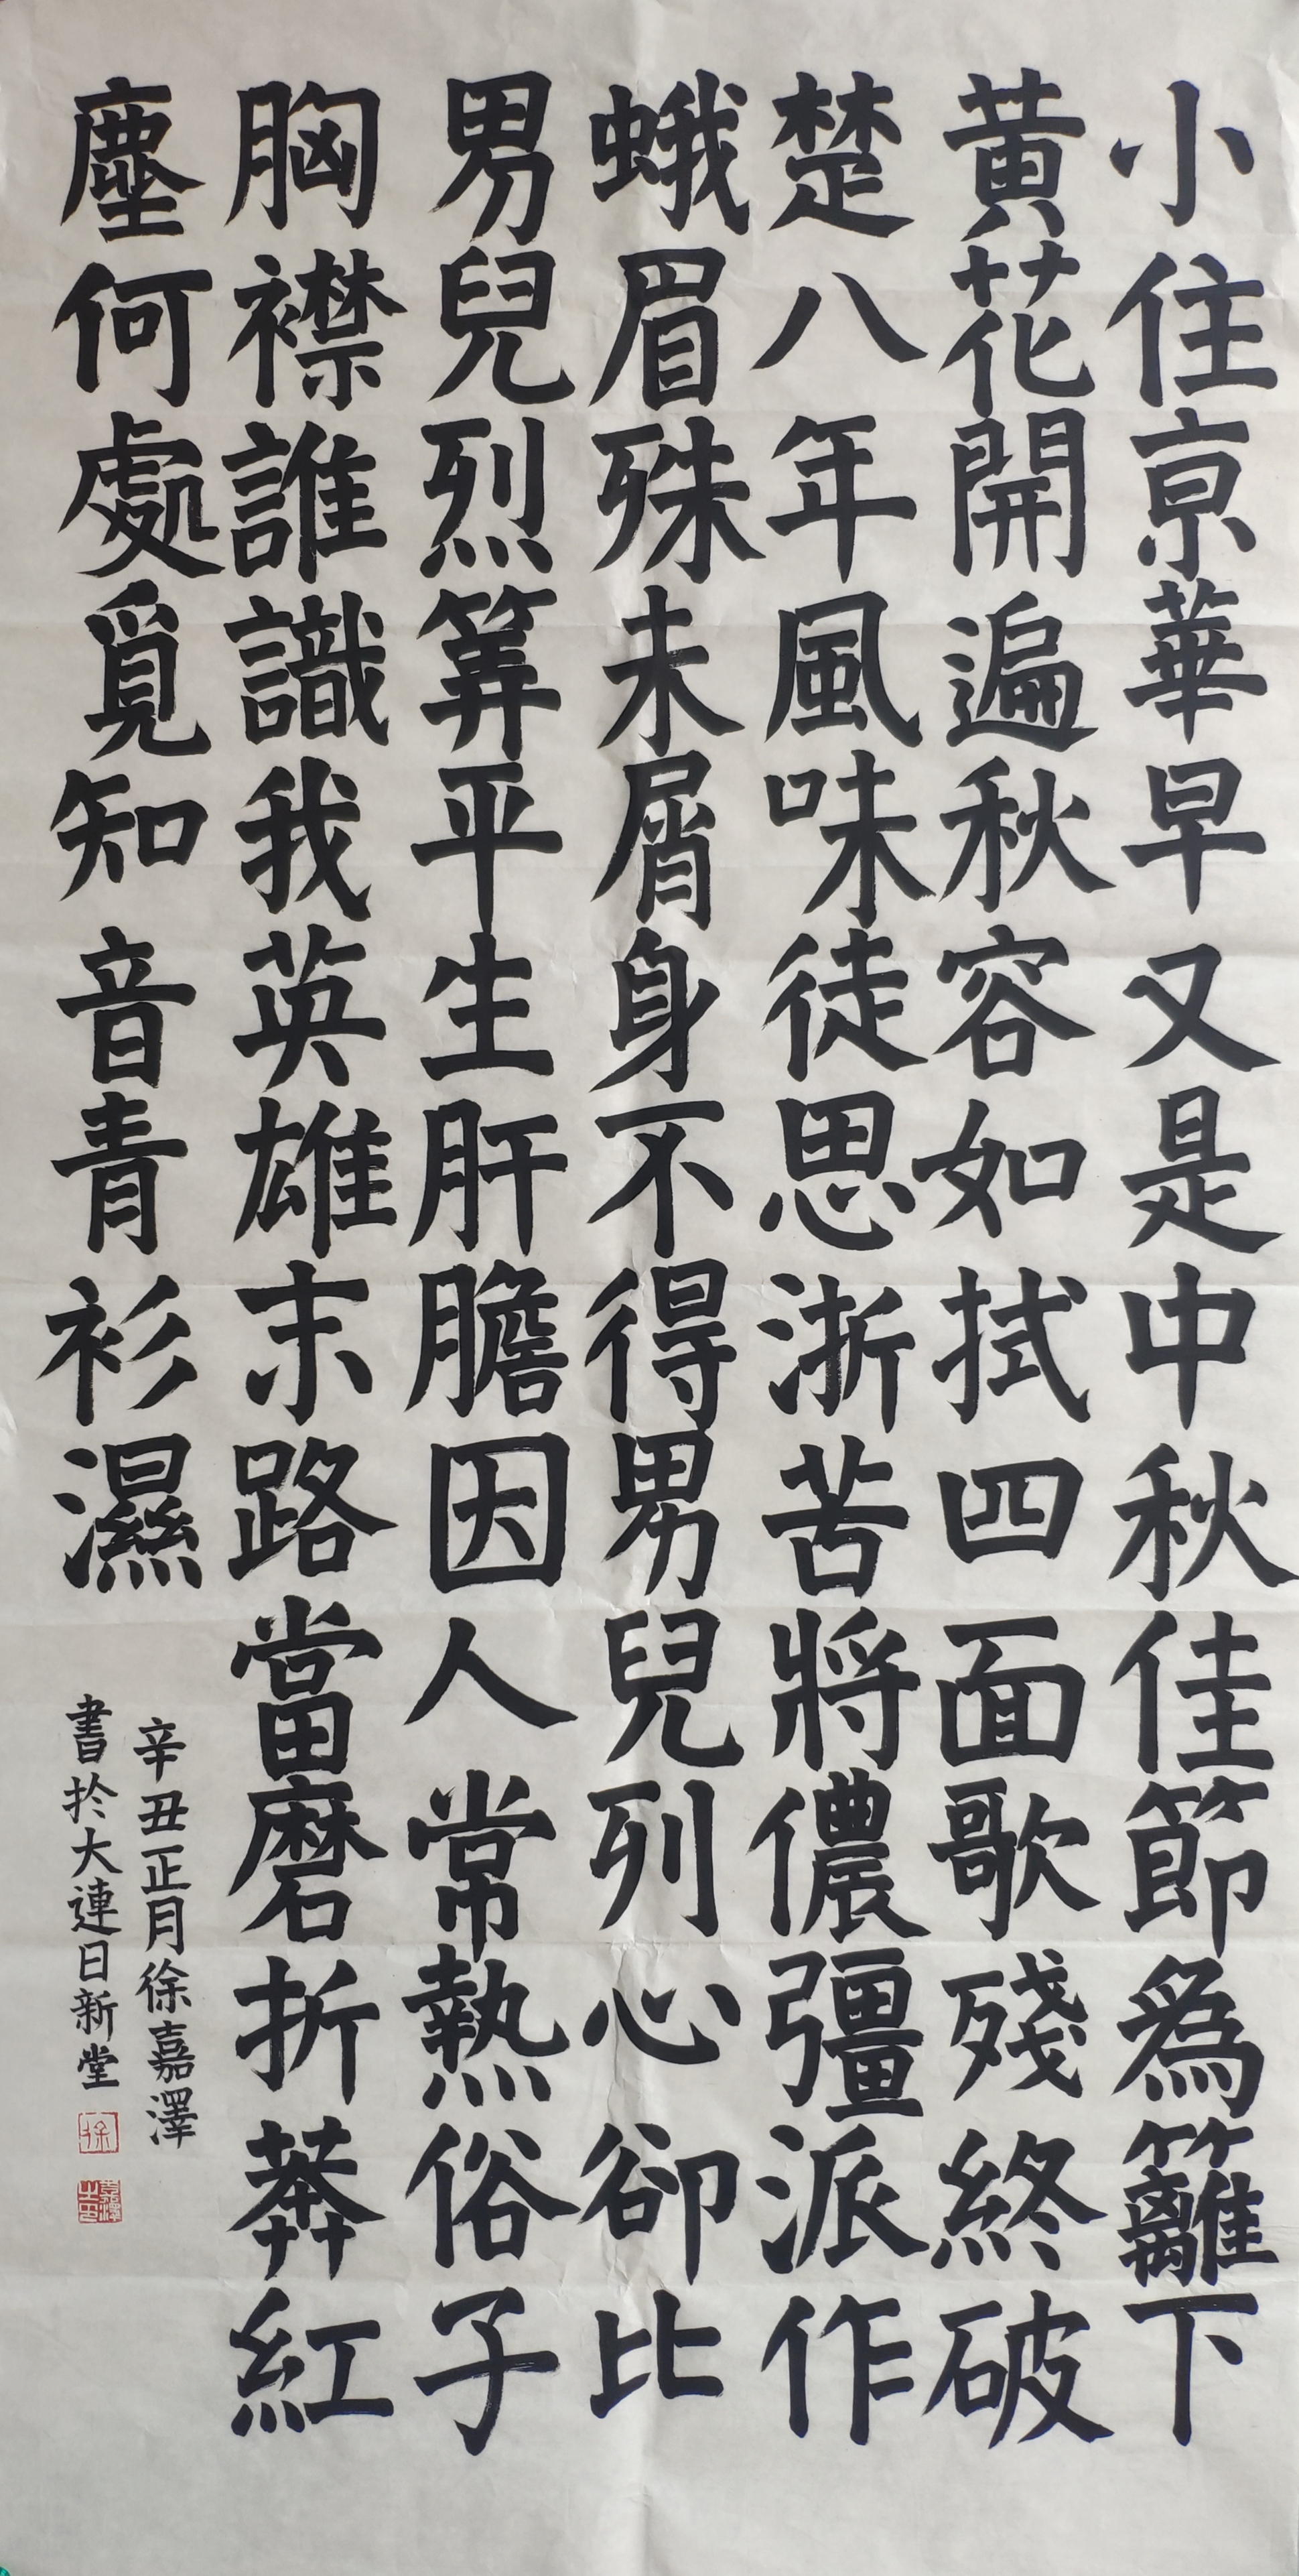 小住京華早又是中秋佳節爲籬下
黃花開遍秋容如拭四面歌殘終破
楚八年風味徒思浙苦將儂彊派作
蛾眉殊未屑身不得男兒列心卻比
男兒烈筭平生肝膽因人常熱俗子
胸襟誰識我英雄末路當磨折莽紅
塵何處覓知音青衫濕
辛丑正月徐嘉澤
書於大連日新堂
徐
嘉澤之印